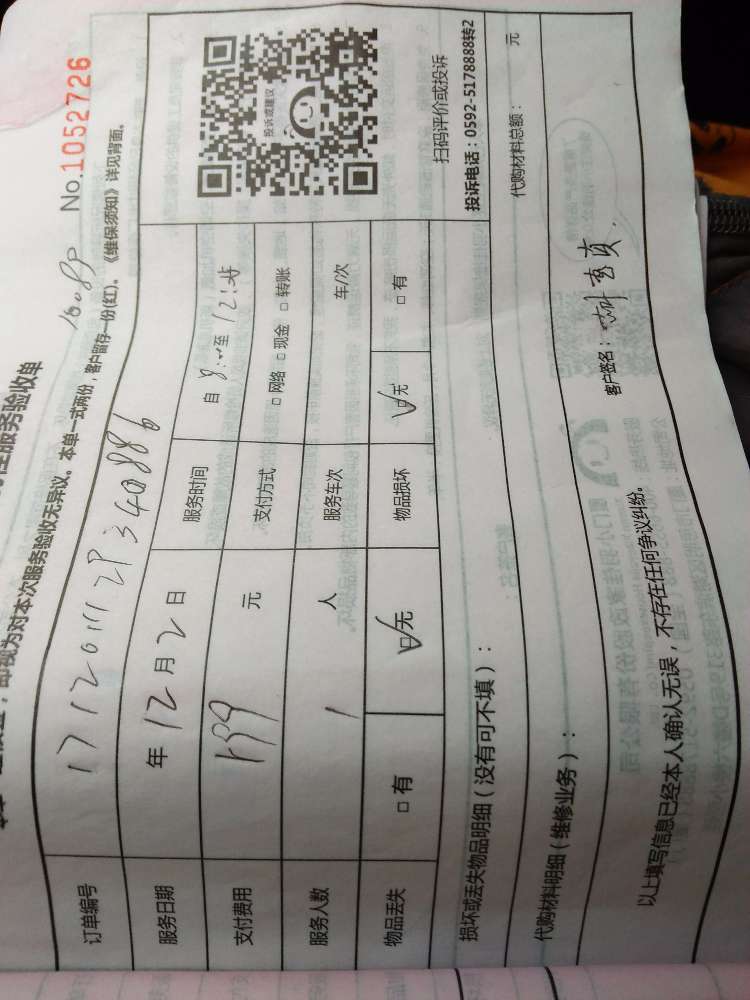 性服务验收单
No.1052726
即视为对本次服务验收无异议。本单一式两份，客户留存一份(红)。《维保须知》详见背面。
订单编号
服务日期 年 12 月 2 日 服务时间 自 8: 至 12:
支付费用 199 元 支付方式 □ 网络 □ 现金 □ 转账
服务人数 1 人 服务车次 车/次
物品丢失 □ 有 □ 无 物品损坏 □ 无 □ 有
投诉或建议
扫码评价或投诉
投诉电话：0592-5178888转2
损坏或丢失物品明细（没有可不填）：
代购材料明细（维修业务）：
代购材料总额： 元
以上填写信息已经本人确认无误，不存在任何争议纠纷。
客户签名：